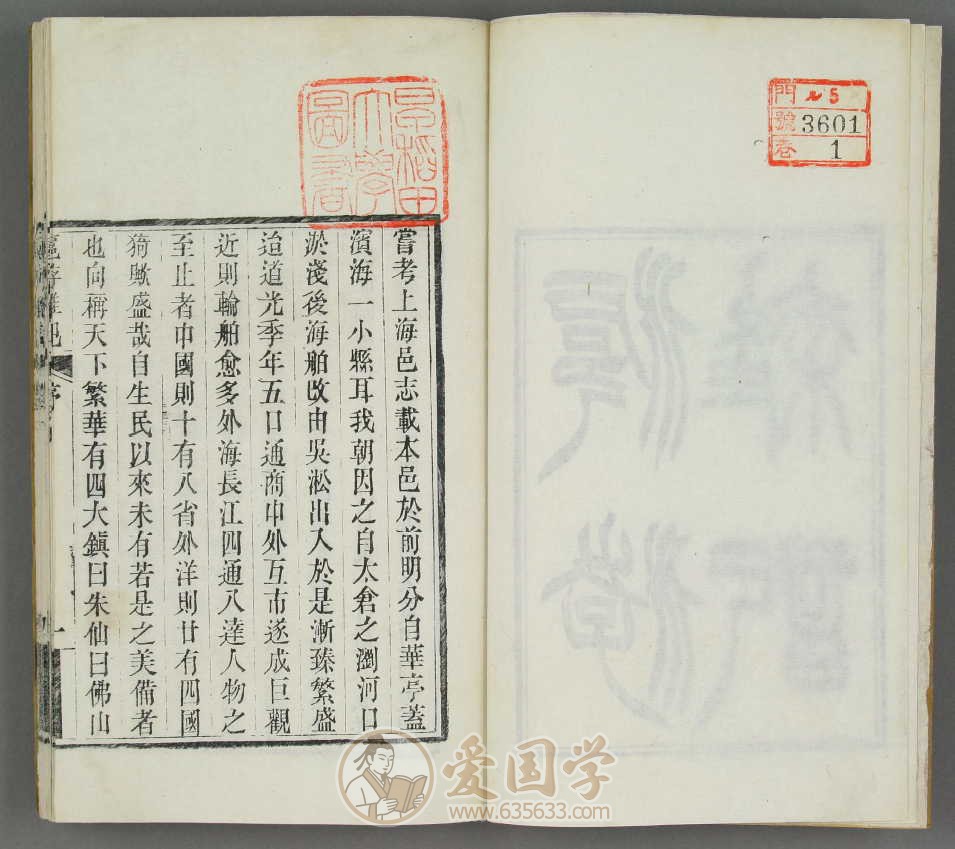 門 ル5
號 3601
卷 1
早稻田
大學
圖書
嘗考上海邑志載本邑於前明分自華亭蓋
濱海一小縣耳我朝因之自太倉之瀏河口
淤淺後海舶改由吳淞出入於是漸臻繁盛
迨道光季年五口通商中外互市遂成巨觀
近則輪舶愈多外海長江四通八達人物之
至止者中國則十有八省外洋則廿有四國
猗歟盛哉自生民以來未有若是之美備者
也向稱天下繁華有四大鎮曰朱仙曰佛山
序 一
爱国学
www.635633.com